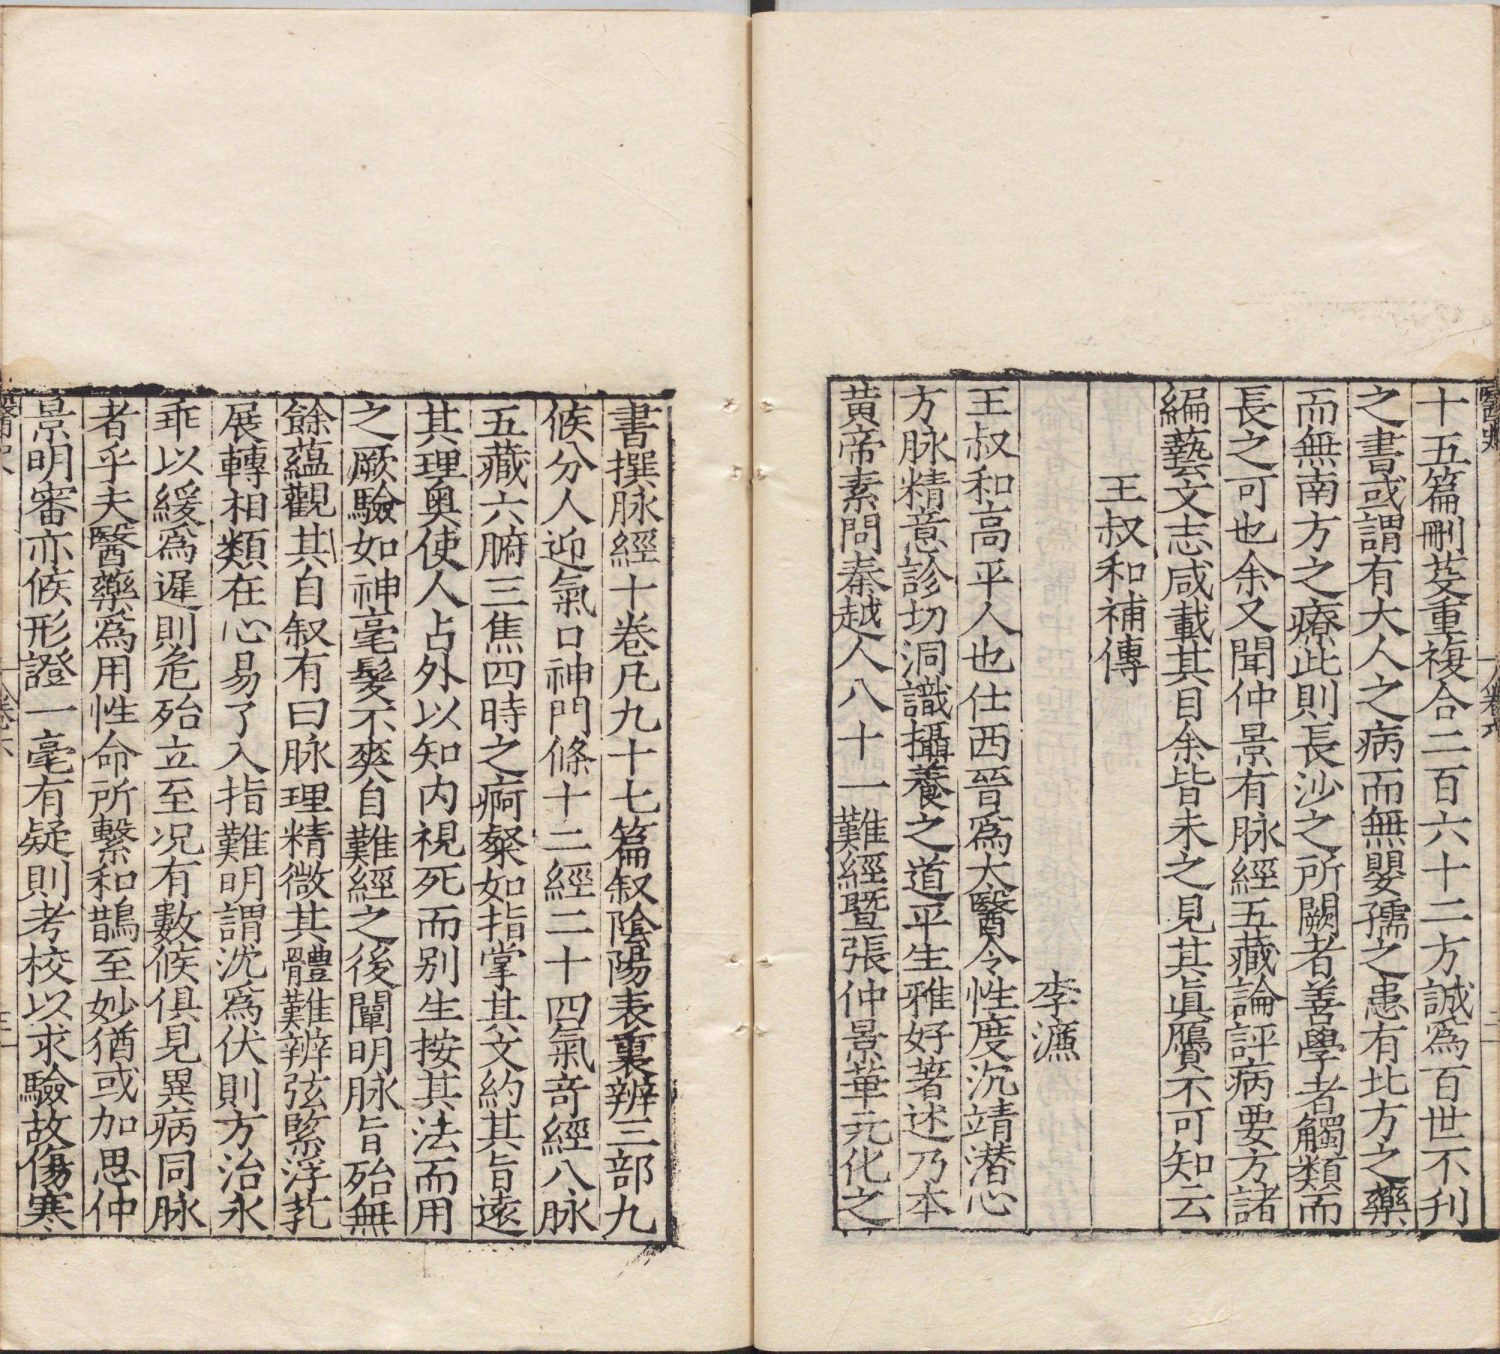 十五篇刪芟重複合二百六十二方誠爲百世不刋
之書或謂有大人之病而無嬰孺之患有北方之藥
而無南方之療此則長沙之所闕者善學者觸類而
長之可也余又聞仲景有脉經五藏論評病要方諸
編藝文志咸載其目余皆未之見其眞贗不可知云
王叔和補傳
李濂
王叔和高平人也仕西晉爲太醫令性度沉靖潜心
方脉精意診切洞識攝養之道平生雅好著述乃本
黄帝素問秦越人八十一難經曁張仲景華元化之
書撰脉經十卷凡九十七篇叙陰陽表裏辨三部九
候分人迎氣口神門條十二經二十四氣奇經八脉
五藏六腑三焦四時之痾粲如指掌其文約其旨遠
其理奥使人占外以知内視死而别生按其法而用
之厥驗如神毫髪不爽自難經之後闡明脉旨殆無
餘蘊觀其自叙有曰脉理精微其體難辨弦緊浮芤
展轉相類在心易了入指難明謂沈爲伏則方治永
乖以緩爲遲則危殆立至况有數候俱見異病同脉
者乎夫醫藥爲用性命所繫和鵲至妙猶或加思仲
景明審亦候形證一毫有疑則考校以求驗故傷寒